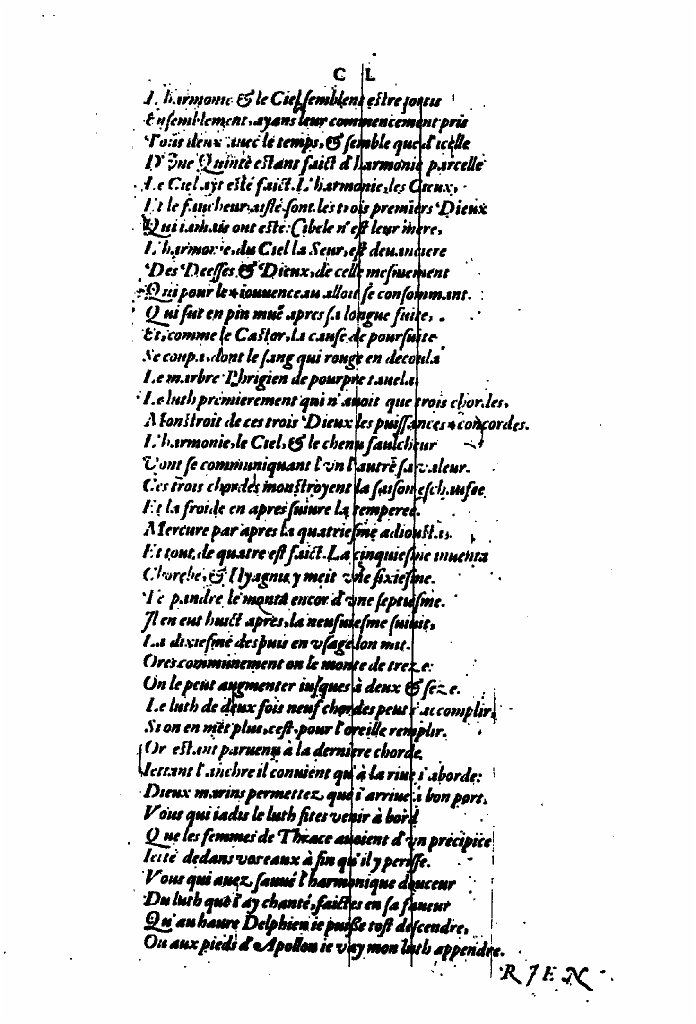 C L
L'harmonie & le Ciel semblent estre joints
Ensemblement, ayans leur commencement pris
Tous deux auec le temps, & semble que d'icelle
D'vne Quinte estans faict d'harmonie parcelle
Le Ciel ayt esté faict. L'harmonie, les Cieux,
Et le faucheur aislé font les trois premiers Dieux
Qui iamais ont esté: Cibele n'est leur mere,
L'harmonie, du Ciel la Seur, est deuanciere
Des Deesses & Dieux, de celle mesmement
Qui pour le iouuenceau alloit se consommant.
Qui fut en pin mué apres sa longue fuite,
Et, comme le Castor, la cause de poursuite
Se coupa, dont le sang qui rouge en decoula
Le marbre Phrigien de pourpre tauela.
Le luth premierement qui n'auoit que trois chordes,
Monstroit de ces trois Dieux les puissances concordes.
L'harmonie, le Ciel, & le chenu faulcheur
Vont se communiquant l'vn l'autre sa valeur.
Ces trois chordes monstroyent la saison eschaufee
Et la froide en apres suiure la temperee.
Mercure par apres la quatriesme adiousta.
Et tout de quatre est faict. La cinquiesme inuenta
Chorebe, & Hyagnis y meit vne sixiesme.
Te pandre le monta encor d'vne septiesme.
Il en eut huict apres, la neufuiesme suiuit,
La dixiesme despuis en vsage lon mit.
Ores communement on le monte de treze:
On le peut augmenter iusques à deux & seze.
Le luth de deux fois neuf chordes peut s'accomplir,
Si on en met plus, cest pour l'oreille remplir.
Or estant paruenu à la derniere chorde,
Iettant l'anchre il conuient qu'à la riue i'aborde:
Dieux marins permettez que i'arriue à bon port,
Vous qui iadis le luth fites venir à bord
Que les femmes de Thrace auoient d'vn precipice
Ietté dedans vos eaux à fin qu'il y perisse.
Vous qui auez sauué l'harmonique douceur
Du luth que i'ay chanté, faictes en sa faueur
Qu'au haure Delphien ie puisse tost descendre,
Ou aux pieds d'Apollon ie vay mon luth appendre.
RIEN